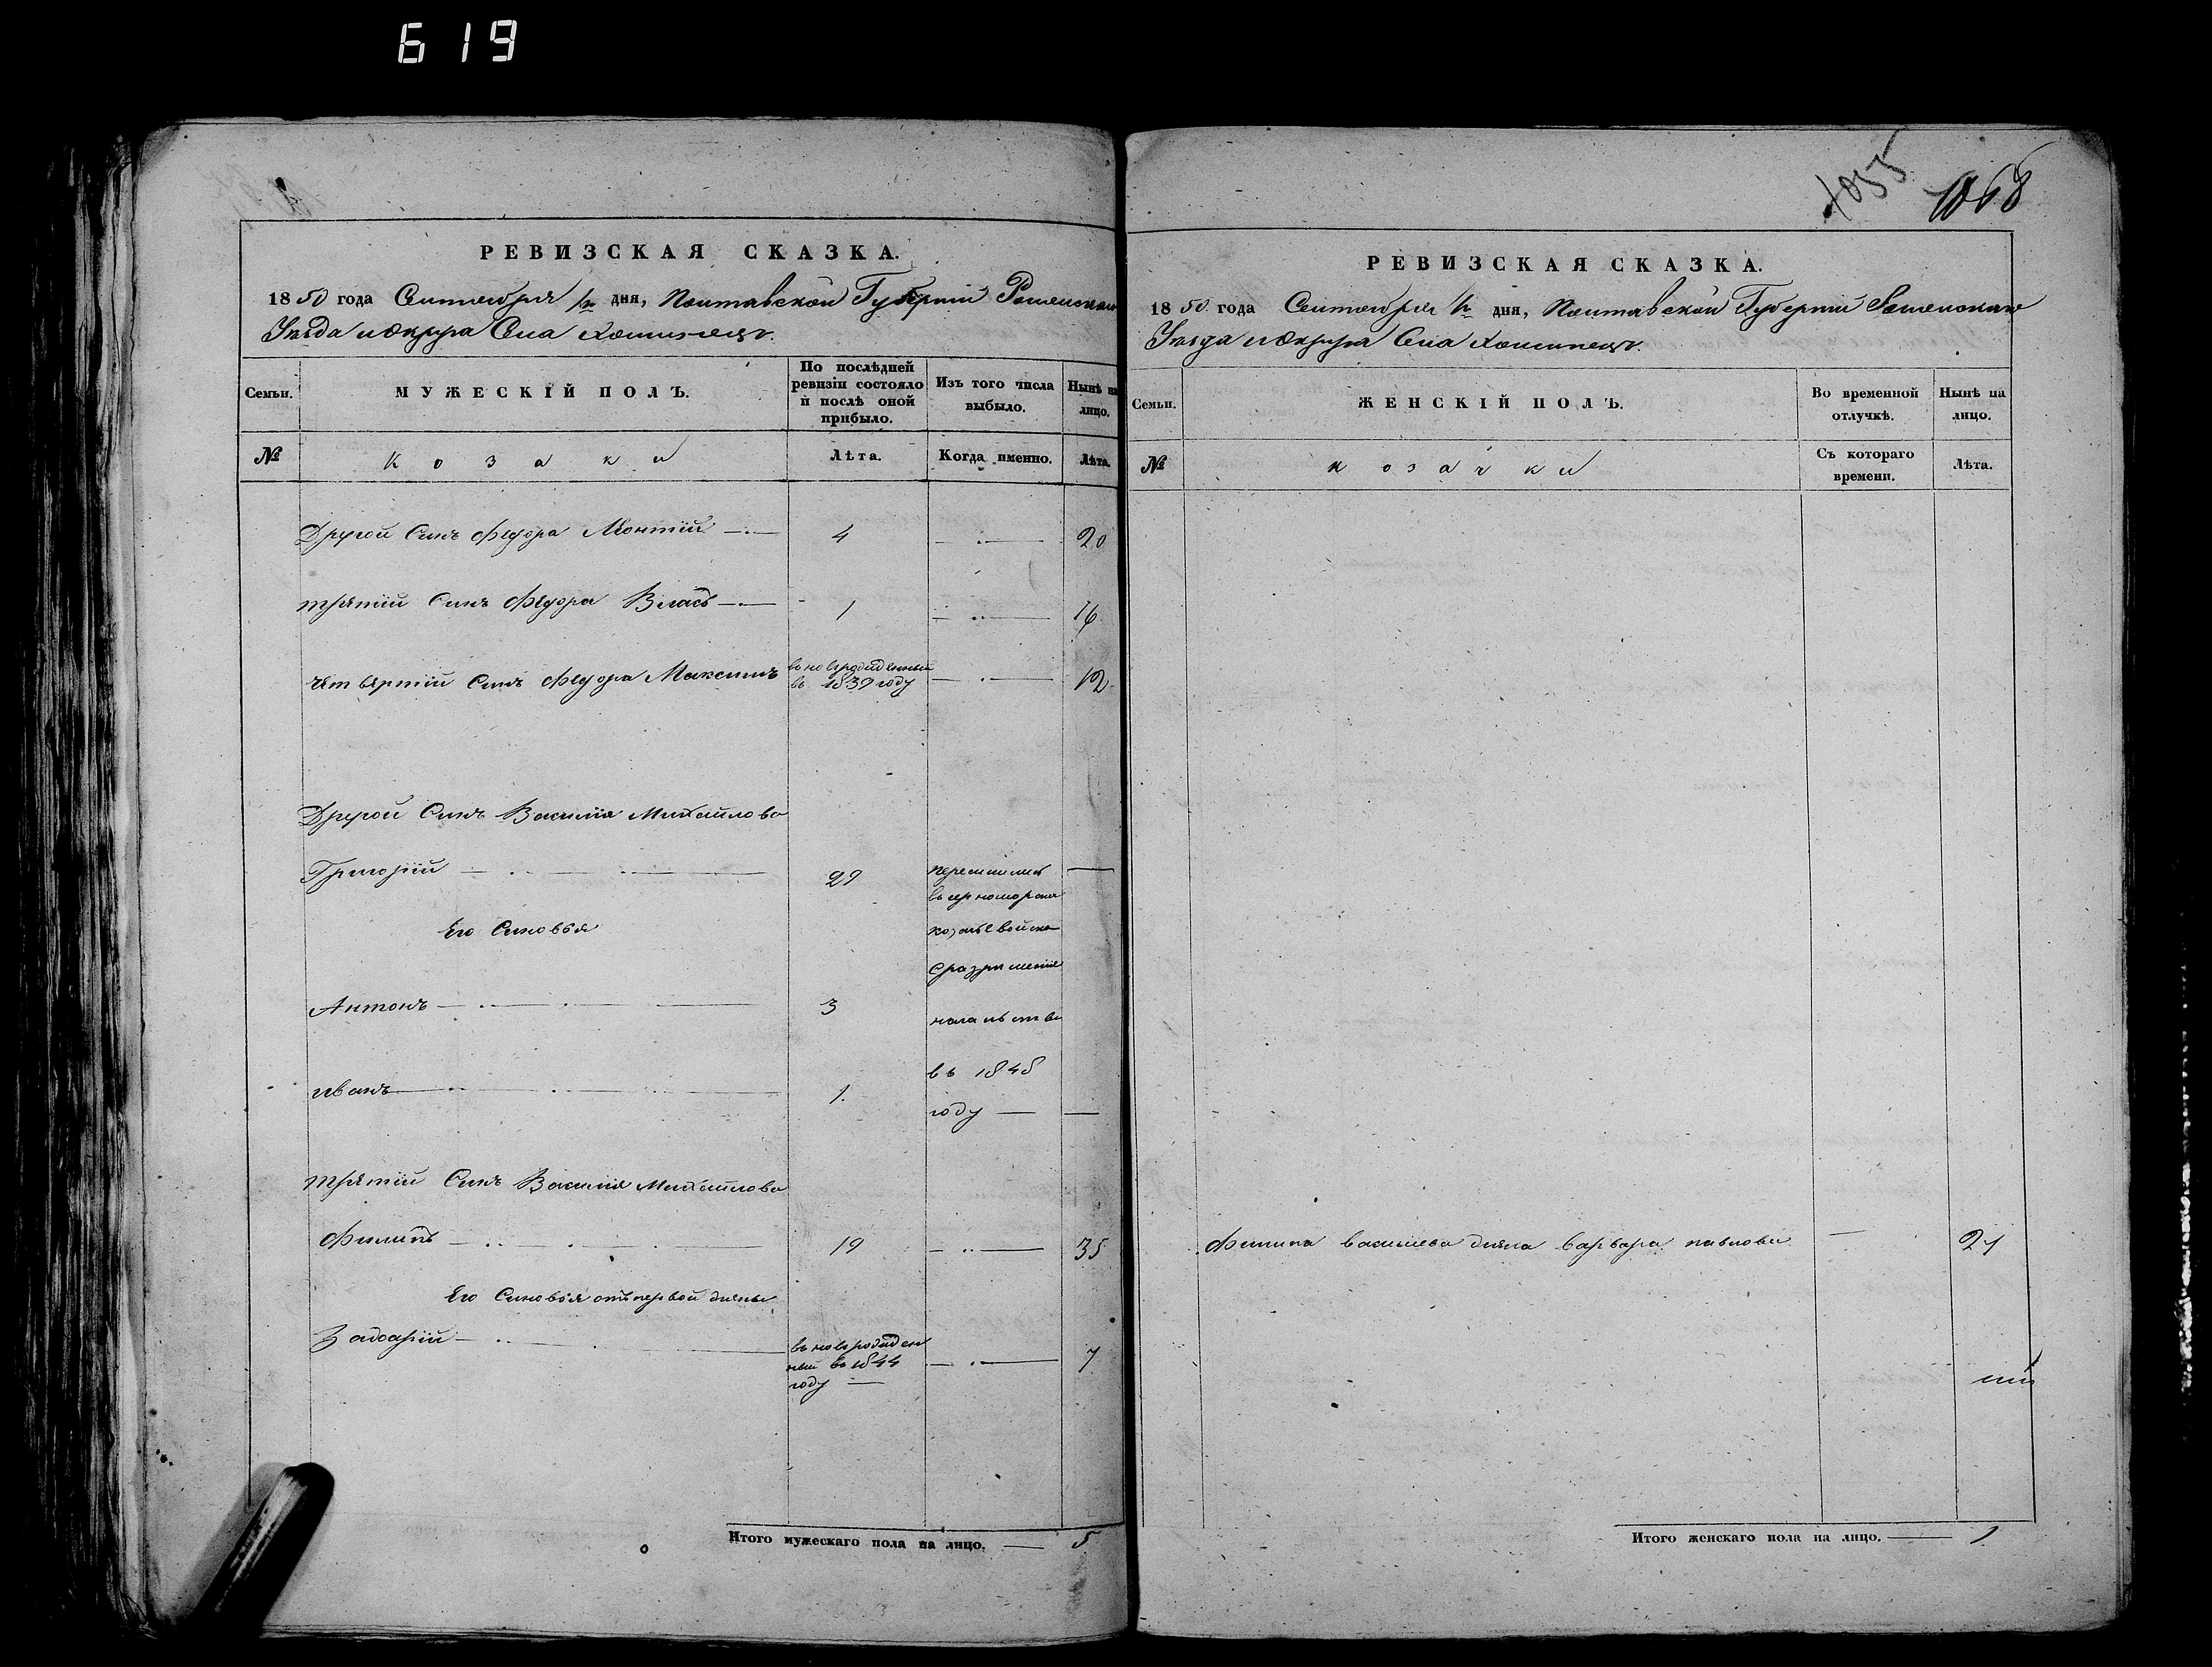 619
1055 1068
РЕВИЗСКАЯ СКАЗКА.
1850 года Сентября дня, Полтавской Губернии Роменскаго
Уезда и Округа Села
Семьи.
МУЖЕСКІЙ ПОЛЪ.
По послѣдней ревизіи состояло и послѣ оной прибыло.
Изъ того числа выбыло.
Нынѣ на лицо.
№
Козаки
Лѣта.
Когда именно.
Лѣта.
Другой Синъ Федора Леонтий 4 20
третий Синъ Федора Власъ 1 16
четвертий Синъ Федора Максимъ вновърожденный въ 1839 году 12
Другой Синъ Василия Михайлова
Григорий 29 переселились
въ черноморское
Его Синовья козачье войско
с разрешения
Антонъ 3 начальства
въ 1848
иванъ 1. году
третий Синъ Василия Михайлова
Филипъ 19 35
Его Синовья отъ первой жены
Захарий вновърожденный въ 1844 году 7
Итого мужескаго пола на лицо. 5
РЕВИЗСКАЯ СКАЗКА.
1850 года Сентября дня, Полтавской Губернии Роменскаго
Уезда и Округа Села
Семьи.
ЖЕНСКІЙ ПОЛЪ.
Во временной отлучкѣ.
Нынѣ на лицо.
№
козачки
Съ котораго времени.
Лѣта.
Филипа васильева жена варвара павлова 21
Итого женскаго пола на лицо. 1